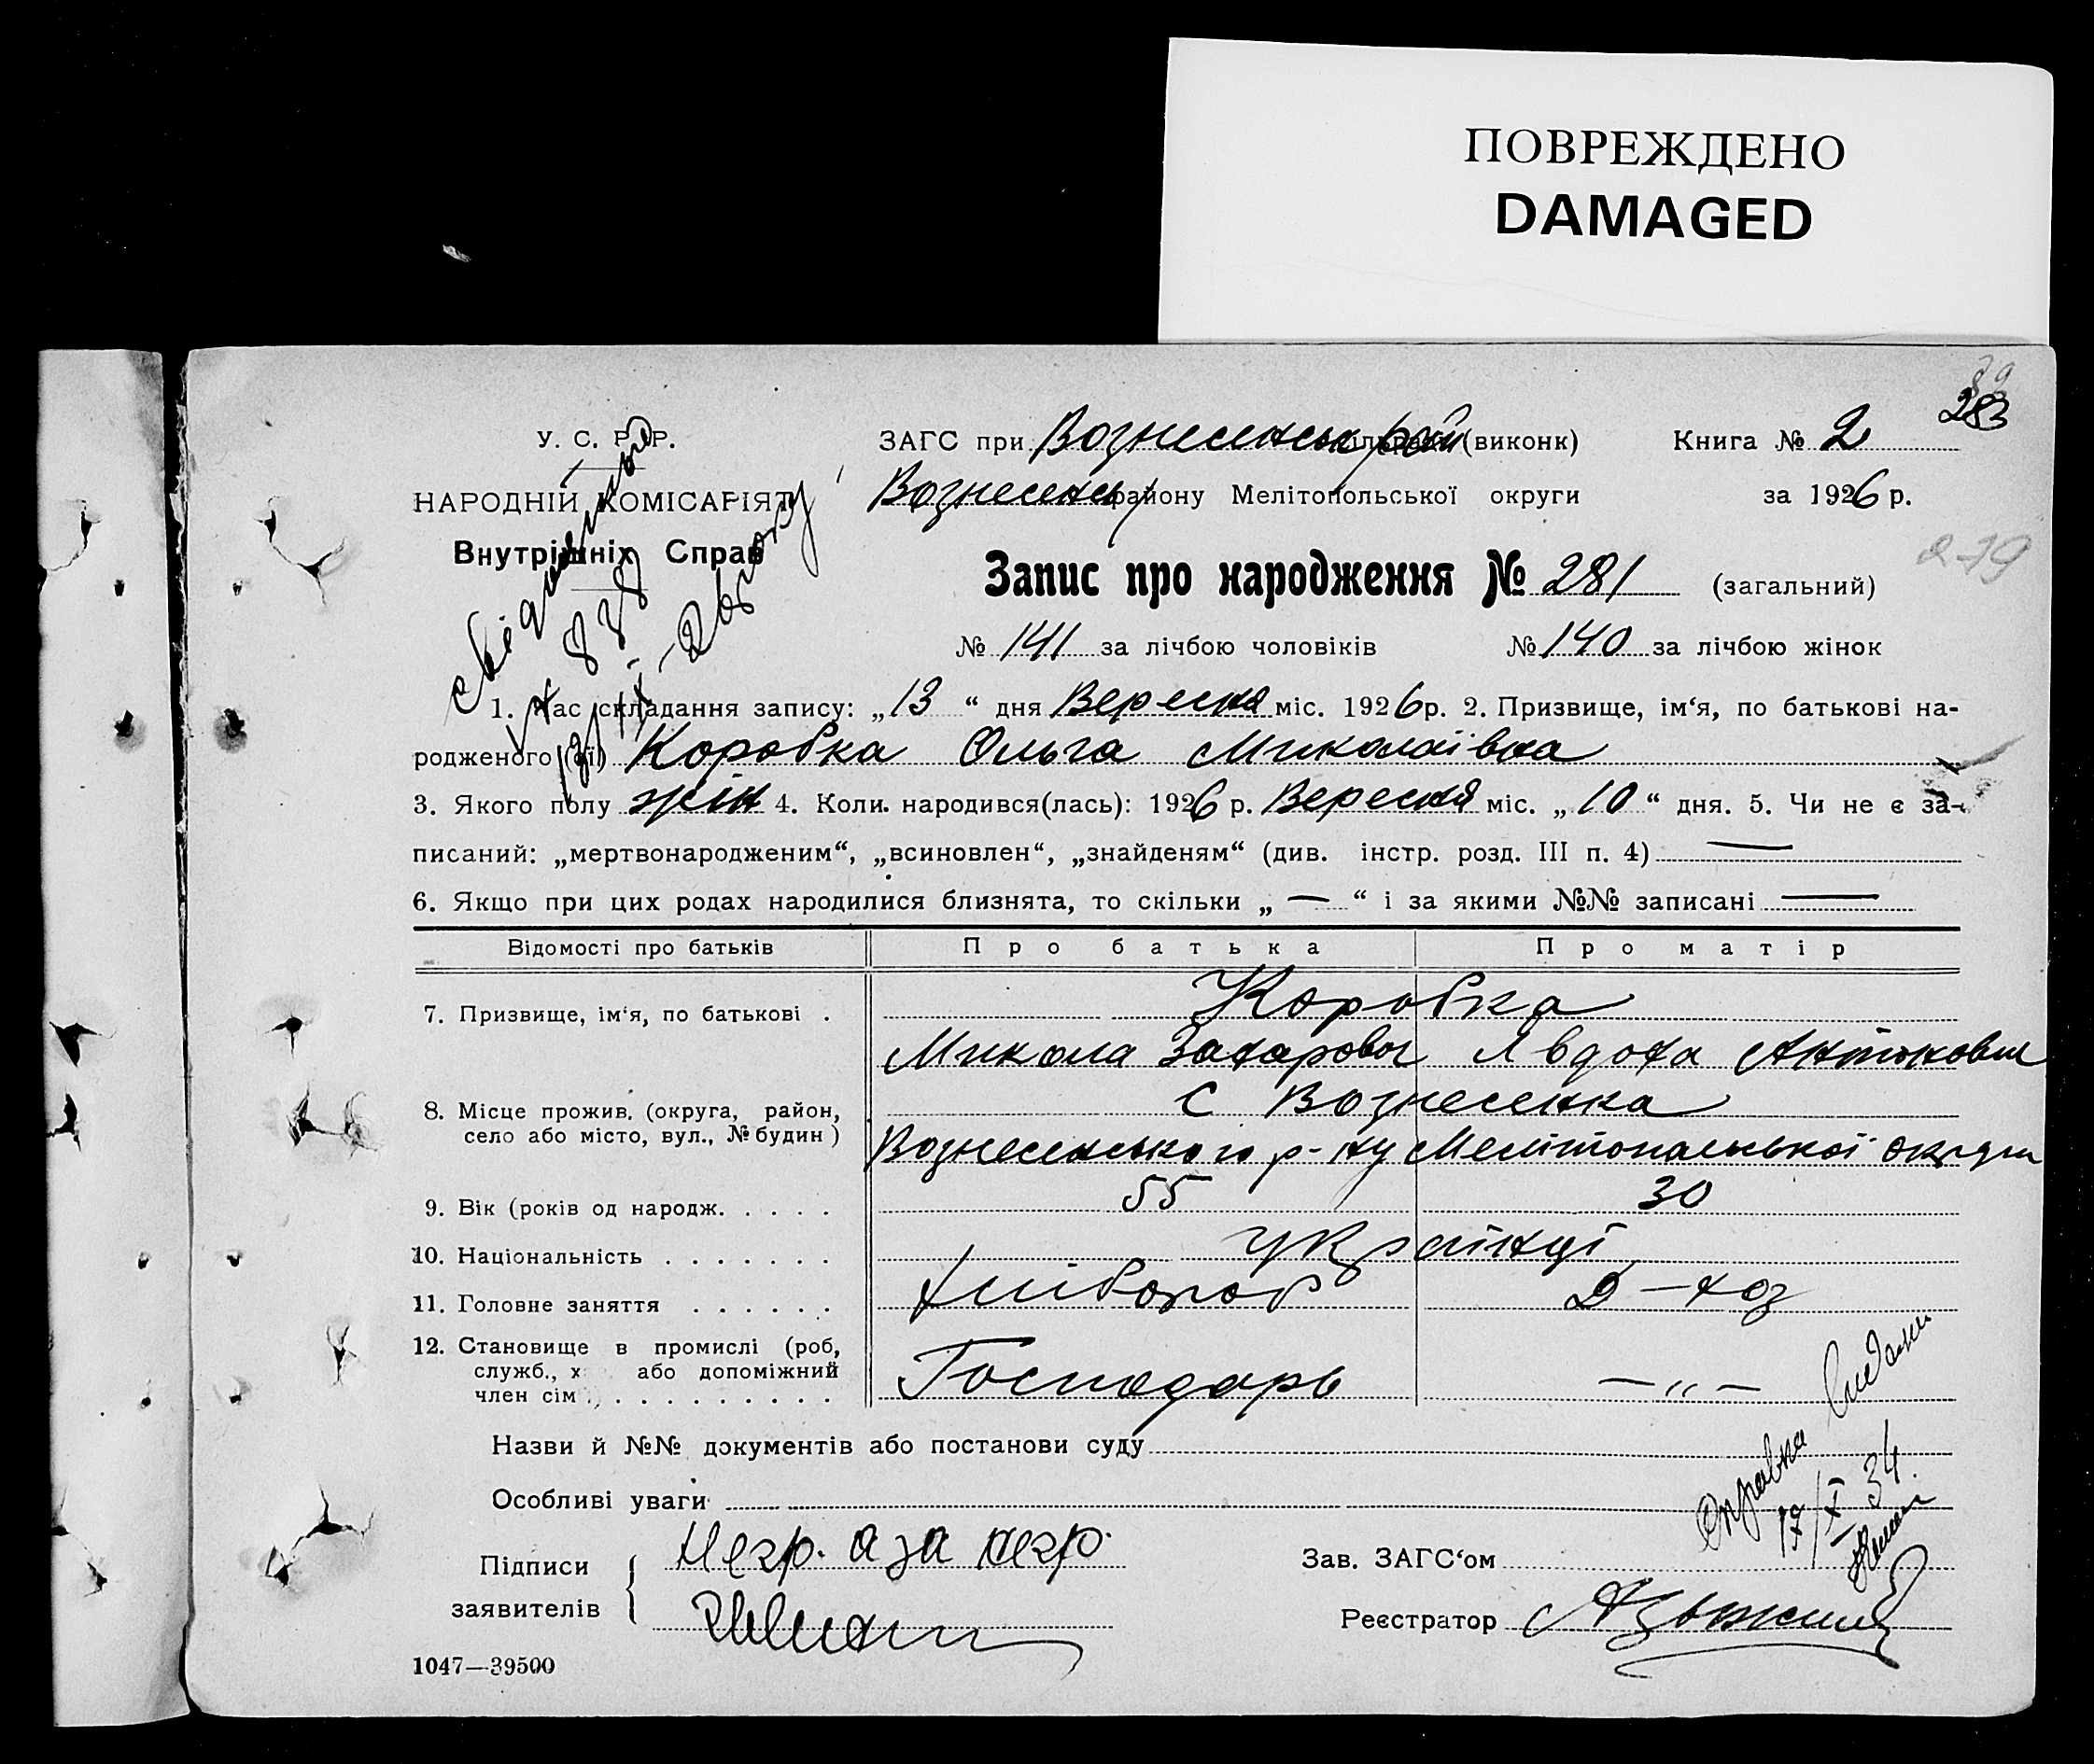 ПОВРЕЖДЕНО
DAMAGED
39
283
У. С. Р. Р.
НАРОДНІЙ КОМІСАРІЯТ
Внутрішніх Справ
ЗАГС при Вознесенськ рай (виконк) Книга № 2
Вознесенськ району Мелітопольської округи за 1926 р.
279
Запис про народження № 281 (загальний)
№ 141 за лічбою чоловіків № 140 за лічбою жінок
№ 838
1. Час складання запису: „13“ дня Вересня міс. 1926 р. 2. Призвище, ім‘я, по батькові на-
родженого (ої) Коробка Ольга Миколаївна
3. Якого полу жін 4. Коли народився(лась): 1926 р. Вересня міс. „10“ дня. 5. Чи не є за-
писаний: „мертвонародженим“, „всиновлен“, „знайденям“ (див. інстр. розд. III п. 4) —
6. Якщо при цих родах народилися близнята, то скільки „—“ і за якими №№ записані —
Відомості про батьків Про батька Про матір
7. Призвище, ім‘я, по батькові . Коробка
Микола Захарович Явдоха Антоновна
8. Місце прожив. (округа, район, с Вознесенка
село або місто, вул., № будин) Вознесенського р-ну Мелітопольської округи
9. Вік (років од народж. . . . . 55 30
10. Національність . . . . . . . українці
11. Головне заняття . . . . . . Хлібороб Д-хоз
12. Становище в промислі (роб,
служб., х або допоміжний
член сім . . . . . . . . . Господарь — „ —
Назви й №№ документів або постанови суду
Особливі уваги
Справка
17/X 34.
Підписи Негр. а за негр.
заявителів
Зав. ЗАГС‘ом
Реєстратор
1047—39500